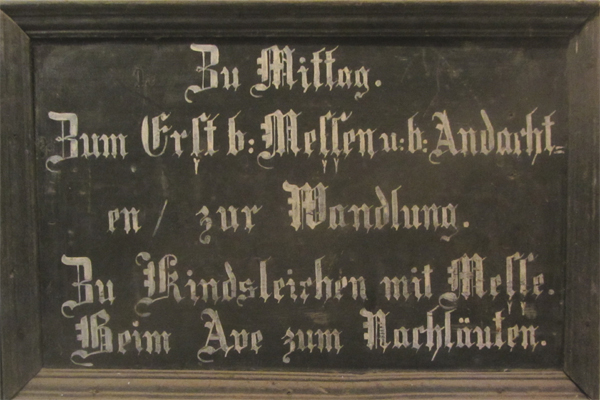 Zu Mittag.
Zum Erst b: Messen u: b: Andacht-
en / zur Wandlung.
Zu Kindsleichen mit Messe.
Beim Ave zum Nachläuten.